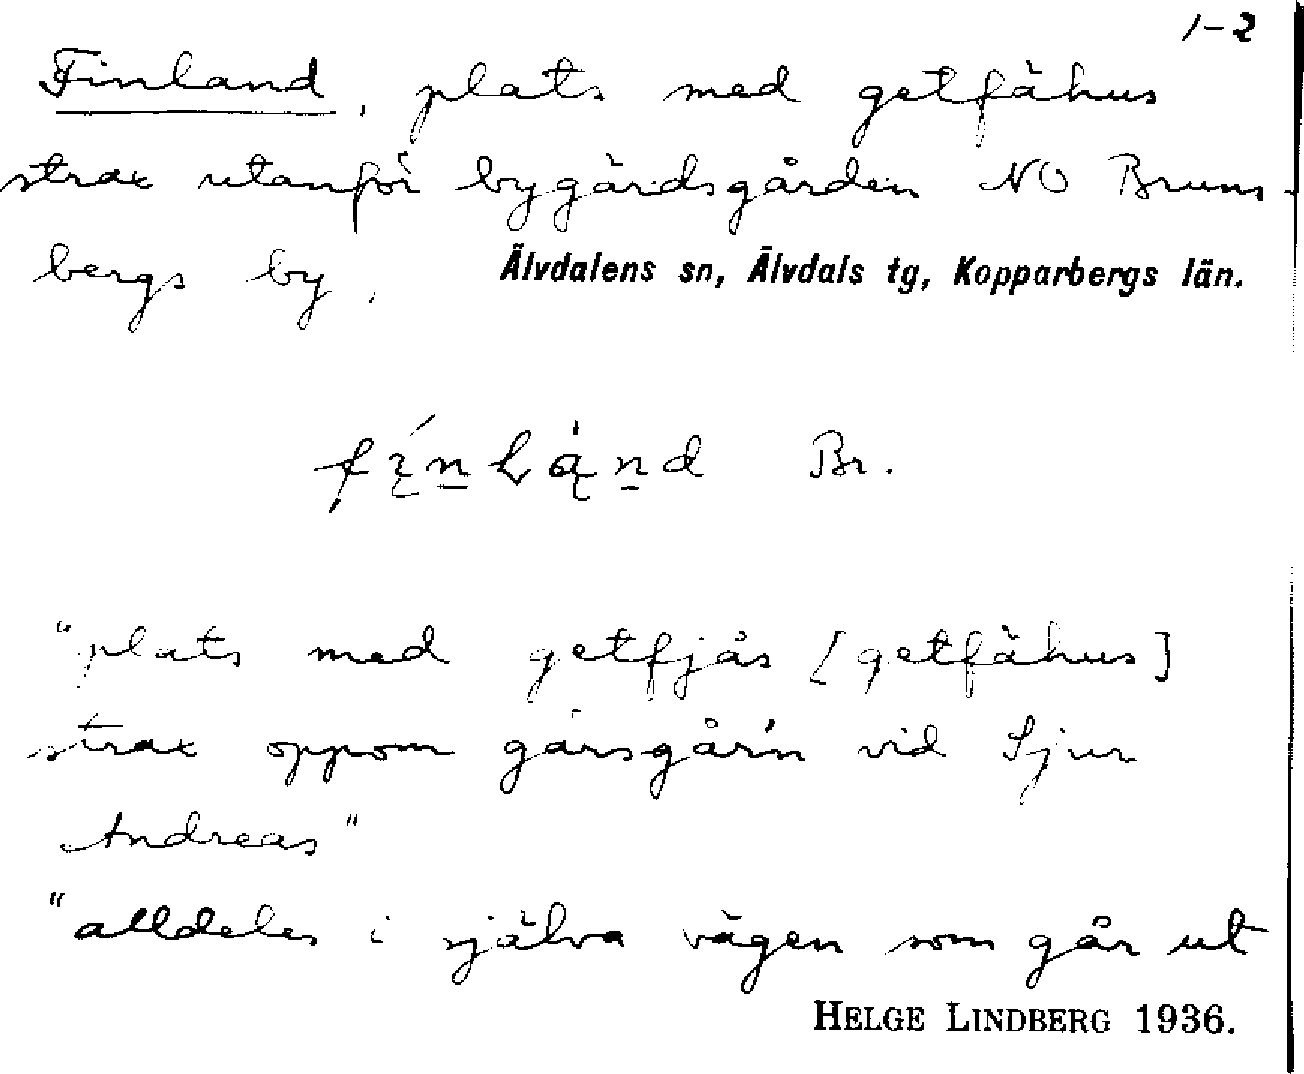 1-2
Finland, plats med getfähus
strax utanför bygärdsgården NO Bruns-
bergs by.
Älvdalens sn, Älvdals tg, Kopparbergs län.
Br.
"plats med getfjås [getfähus]
strax oppom gärsgår'n vid Sjur
Andreas"
"alldeles i själva vägen som går ut
HELGE LINDBERG 1936.